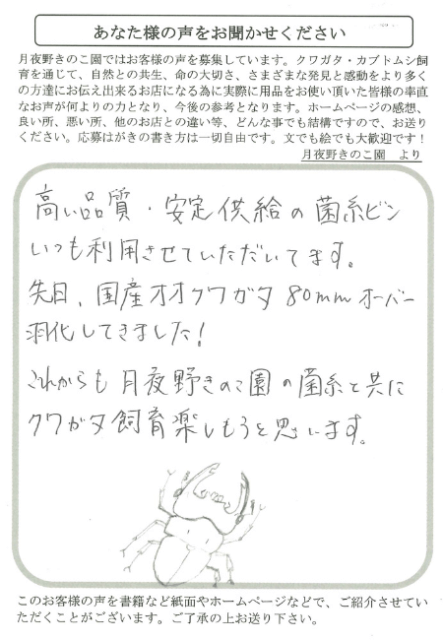 あなた様の声をお聞かせください
月夜野きのこ園ではお客様の声を募集しています。クワガタ・カブトムシ飼
育を通じて、自然との共生、命の大切さ、さまざまな発見と感動をより多く
の方達にお伝え出来るお店になる為に実際に用品をお使い頂いた皆様の率直
なお声が何よりの力となり、今後の参考となります。ホームページの感想、
良い所、悪い所、他のお店との違い等、どんな事でも結構ですので、お送り
ください。応募はがきの書き方は一切自由です。文でも絵でも大歓迎です！
月夜野きのこ園　より
高い品質・安定供給の菌糸ビン
いつも利用させていただいてます。
先日、国産オオクワガタ80mmオーバー
羽化してきました！
これからも月夜野きのこ園の菌糸と共に
クワガタ飼育楽しもうと思います。
このお客様の声を書籍など紙面やホームページなどで、ご紹介させてい
ただくことがございます。ご了承の上お送り下さい。